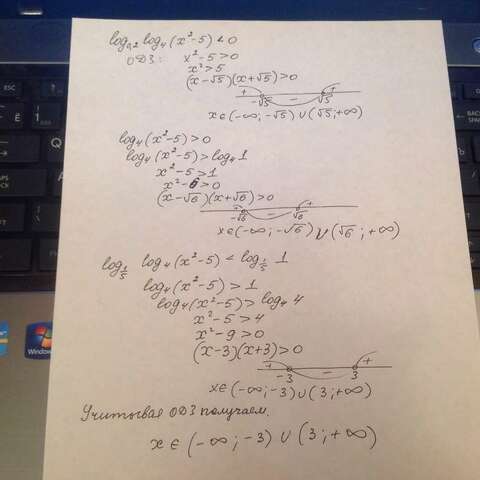 log₀,₂ log₄(x²-5) < 0
ОДЗ: x²-5>0
x²>5
(x-√5)(x+√5)>0
+ - +
-√5 √5
x∈(-∞;-√5)∪(√5;+∞)
log₄(x²-5)>0
log₄(x²-5)>log₄1
x²-5>1
x²-6>0
(x-√6)(x+√6)>0
+ - +
-√6 √6
x∈(-∞;-√6)∪(√6;+∞)
log_{1/5} log₄(x²-5) < log_{1/5} 1
log₄(x²-5)>1
log₄(x²-5)>log₄4
x²-5>4
x²-9>0
(x-3)(x+3)>0
+ - +
-3 3
x∈(-∞;-3)∪(3;+∞)
Учитывая ОДЗ получаем.
x∈(-∞;-3)∪(3;+∞)
Windows